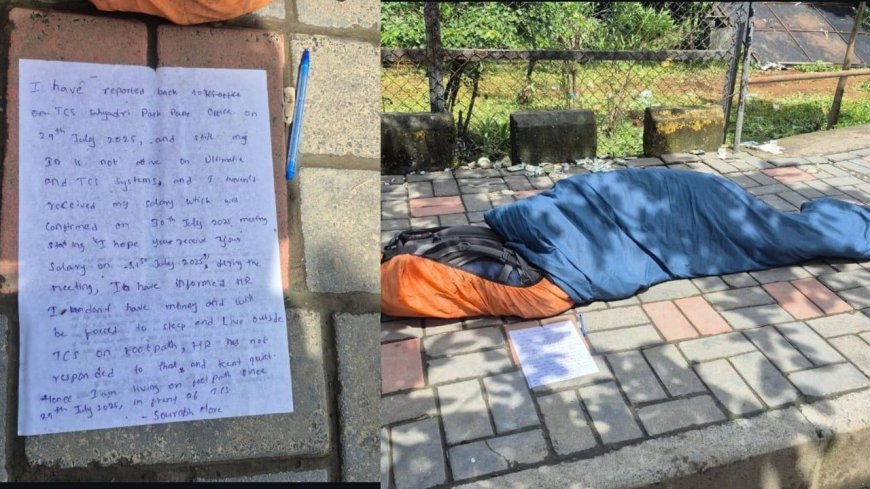 I have reported back to office
on TCS Sahyadri Park Pune Office on
29th July 2025, and still my
ID is not active on Ultimatix
and TCS Systems, and I haven't
received my salary which was
confirmed on 30th July 2025 meeting
stating "I hope you receive your
Salary on 31st July 2025", during the
meeting, I have informed HR
I don't have money and will
be forced to sleep and Live outside
TCS on footpath, HR has not
responded to that, and kept quiet.
Hence I am living on footpath since
29th July 2025, in front of TCS
- Saurabh More